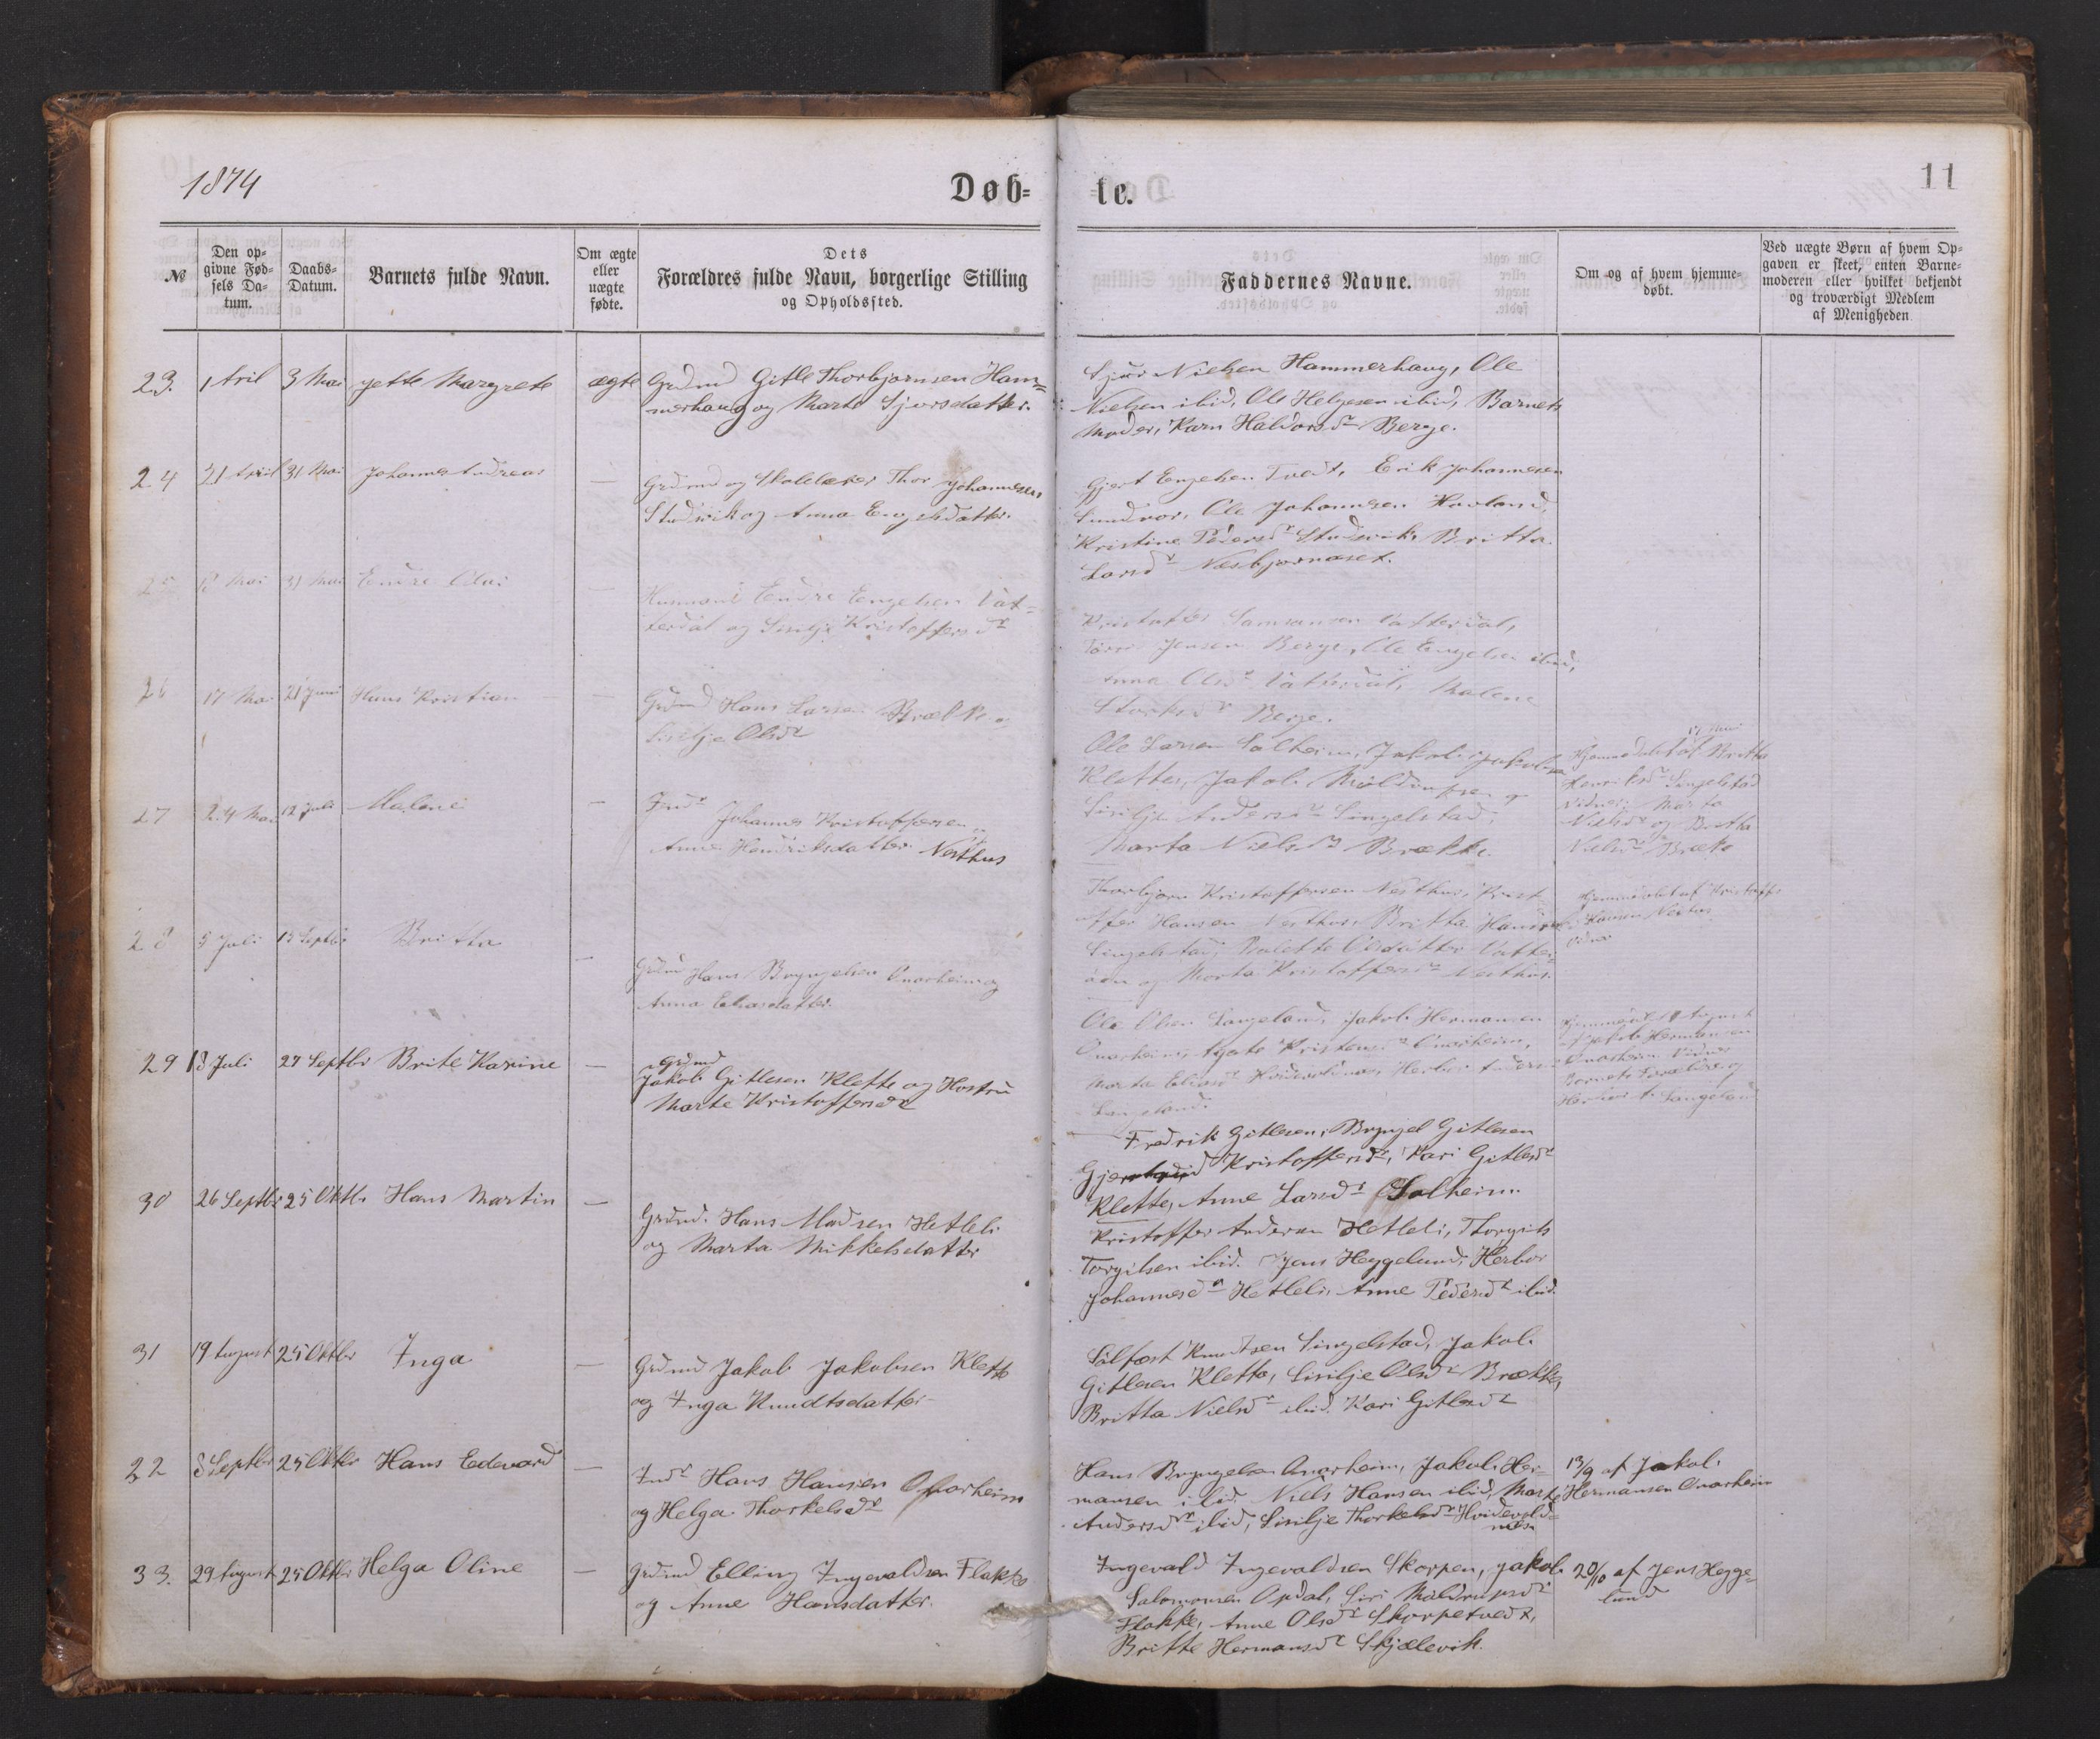 1874
Døb-
te.
11
№
Den op-
givne Fød-
sels Da-
tum.
Daabs-
Datum.
Barnets fulde Navn.
Om ægte
eller
uægte
fødte.
Dets
Forældres fulde Navn, borgerlige Stilling
og Opholdssted.
Faddernes Navne.
Om og af hvem hjemme-
døbt.
Ved uægte Børn af hvem Op-
gaven er skeet, enten Barne-
moderen eller hvilket bekjendt
og troværdigt Medlem
af Menigheden
23. 1 April 3 Mai Jette Margrete ægte Grdmd Gitle Thorbjørnsen Ham-
merhaug og Marte Sjursdatter.
Sjur Nielsen Hammerhaug, Ole
Nielsen ibid, Ole Helgesen ibid, Barnets
Moder, Karn Haldorsdr Berge.
24 21 April 31 Mai Johannes Andreas — Grdmd og Skolelærer Thor Johannesen
Studsvik og Anna Engelsdatter.
Gjert Engelsen Tvedt, Erik Johannesen
Sundvor, Ole Johannesen Hovland,
Kristine Pedersdr Studsvik, Britta
Larsdr Nesbjørnaset.
25 Mai 31 Mai Endre Olai — Husmand Endre Engelsen Vat-
terdal og Sisilje Kristoffersdr
Kristoffer Samsonsen Vatterdal,
Jensen Berge, Ole Engelsen ibid,
Anna Olsdr Vatterdal, Malene
Berge.
26 17 Mai 21 Juni Hans Kristian — Grdmd Hans Larsen Brække og
Sisilje Olsdr
Ole Larsen Solheim, Jakob Jakobsen
Klette, Jakob og
Sisilje Andersdr Singelstad,
Marta Nielsdr Brække.
17 Mai
Hjemmedøbt af Britta
Henriksdr Singelstad
Vidner Marta
Nielsdr og Britta
Nielsdr Bræke
27 24 Mai 12 Juli Malene — Indr
Johannes Kristoffersen og
Anne Hendriksdatter Nesthus
Thorbjørn Kristoffersen Nesthus, Krist-
offer Hansen Nesthus, Britta
Singelstad, Olsdatter
og Marta Kristoffersdr Nesthus.
Hjemmedøbt af Kristoffer
Hansen Nesthus
28 5 Juli 13 Septbr Britta — Grdmd Hans Brynjelsen Onarheim og
Anna Eliasdatter.
Ole Olsen Langeland, Jakob Hermansen
Onarheim, Agate Kristensdr Onarheim,
Marta Eliasdr Herbor
Langeland.
August
af Jakob Hermansen
Onarheim Vidner
Barnets Forældre og
Langeland
29 18 Juli 27 Septbr Brite Karine — Grdmd
Jakob Gitlesen Klette og Hustru
Marte Kristoffersdr
Fredrik Gitlesen, Brynjel Gitlesen
Kristoffersdr, Kari Gitlesdr
Klette, Anne Larsdr Solheim.
30 26 Septbr 25 Oktbr Hans Martin — Grdmd. Hans Madsen Hetleli
og Marta Mikkelsdatter
Kristoffer Andersen Hetleli, Thorgils
Torgilsen ibid. Jens Heggelund, Herbor
Johannesdr Hetleli, Anne Pedersdr ibid.
31 19 August 25 Oktbr Inga — Grdmd Jakob Jakobsen Klette
og Inga Knudtsdatter
Salfast Knudtsen Singelstad, Jakob
Gitlesen Klette, Sisilje Olsdr Brække,
Britta Nielsdr ibid. Kari Gitlesdr
22 8 Septbr 25 Oktbr Hans Edevard — Indr Hans Hansen Onarheim
og Helga Thorkelsdr
Hans Brynjelsen Onarheim, Jakob Her-
mansen ibid. Niels Hansen ibid, Marta
Andersdr ibid, Sisilje Thorkelsdr Hvidevold-
næsn
13/9 af Jakob
Hermansen Onarheim
33. 29 August 25 Oktbr Helga Oline — Grdmd Elling Ingevaldsen Flakke
og Anne Hansdatter.
Ingevald Ingevaldsen Skorpen, Jakob
Salomonsen Opdal, Siri Maldrupsdr
Flakke, Anne Olsdr Skorpetvedt,
Britte Hermansdr Skjælevik.
20/10 af Jens Hegge-
lund